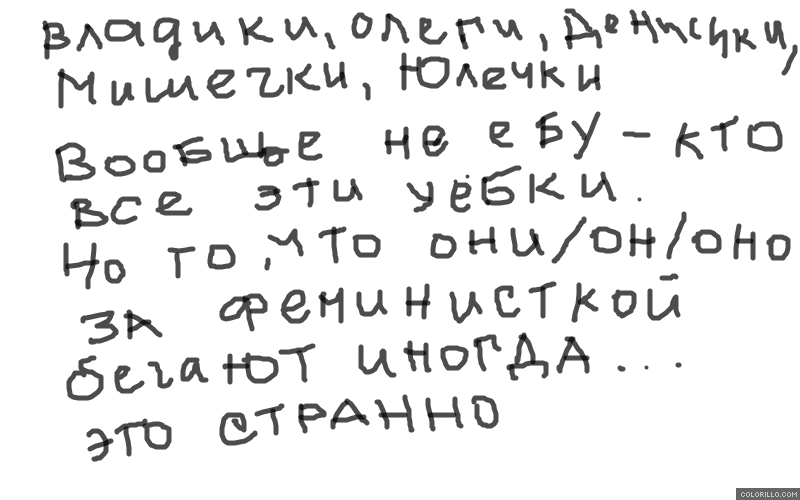 владики, олеги, Денисики,
Мишечки, Юлечки
Вообще не ебу - кто
все эти уёбки.
Но то, что они/он/оно
за феминисткой
бегают иногда...
это странно
COLORILLO.COM